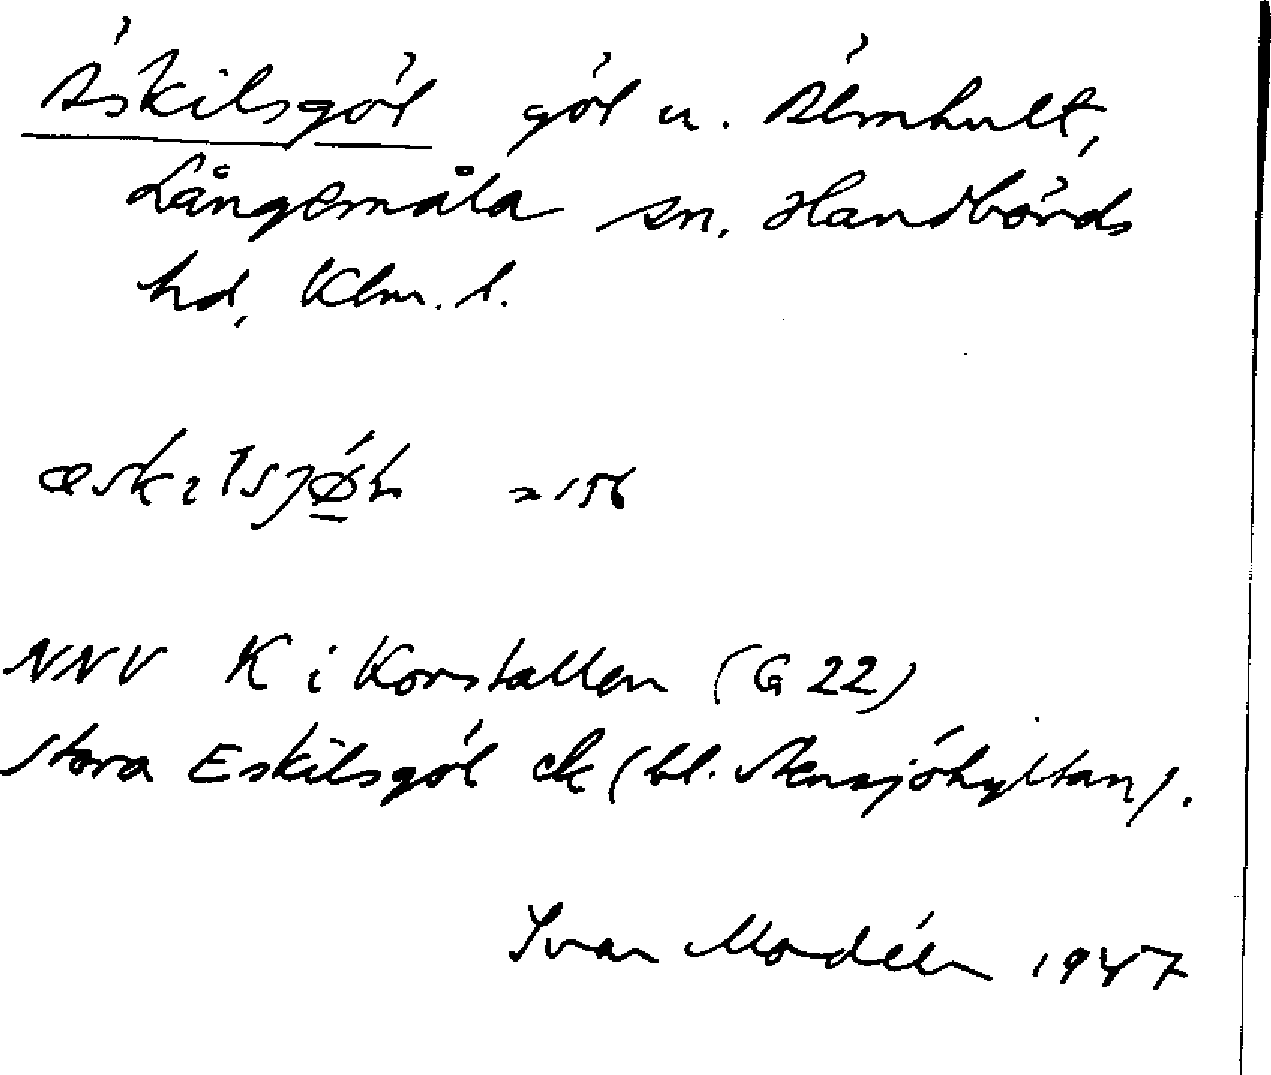 Äskilsgöl göl u. Älmhult,
Långemåla sn, Handbörds
hd, Klm. l.
NNV K i Korstallen (G 22)
Stora Eskilsgöl ek (bl. Stensjöhyttan).
Ivar Modéer 1947